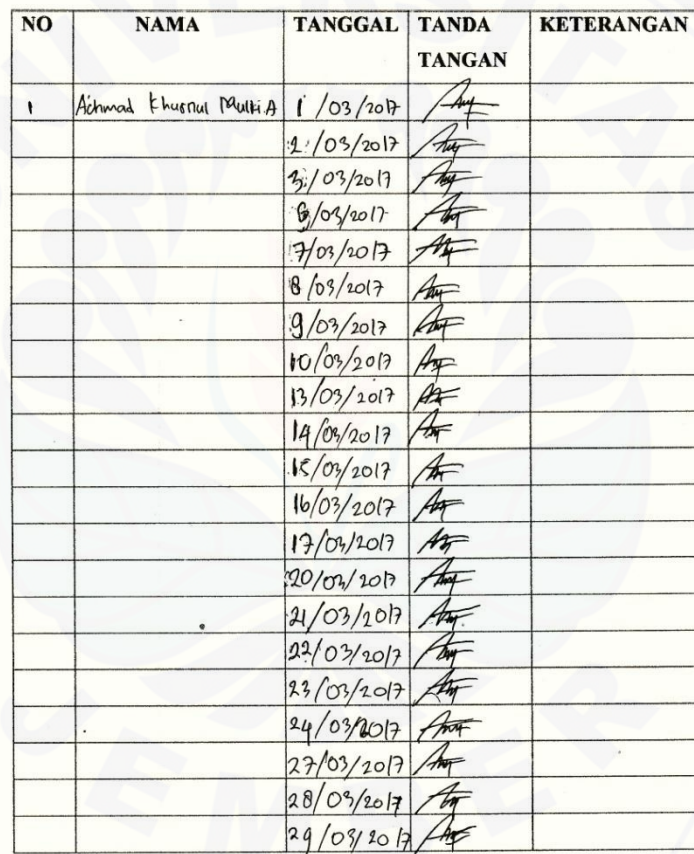 NO NAMA TANGGAL TANDA TANGAN KETERANGAN
1 Achmad Khusnul Mulki.A 1/03/2017
2/03/2017
3/03/2017
6/03/2017
7/03/2017
8/03/2017
9/03/2017
10/03/2017
13/03/2017
14/03/2017
15/03/2017
16/03/2017
17/03/2017
20/03/2017
21/03/2017
22/03/2017
23/03/2017
24/03/2017
27/03/2017
28/03/2017
29/03/2017